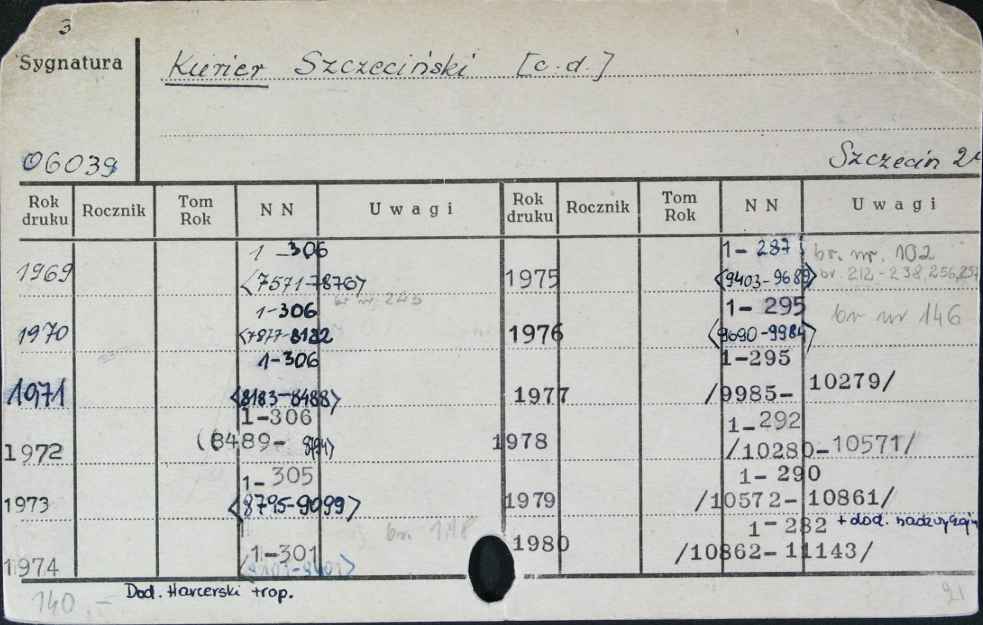 3
Sygnatura Kurier Szczeciński [c.d.]
06039 Szczecin
Rok druku Rocznik Tom Rok NN Uwagi Rok druku Rocznik Tom Rok NN Uwagi
1969 1-306 <7571-7876> 1975 1-287 <9403-9689> br. nr. 102 br. 212-238, 256, 257
br nr
1970 1-306 <7877-8182> 1976 1-295 <9690-9984> br nr 146
1971 1-306 <8183-8488> 1977 1-295 /9985-10279/
1972 1-306 (8489-8794) 1978 1-292 /10280-10571/
1973 1-305 <8795-9099> 1979 1-290 /10572-10861/
1974 1-301 br. 148 1980 1-282 /10862-11143/ + dod. nadzwyczajn
140,- Dod. Harcerski trop. 21